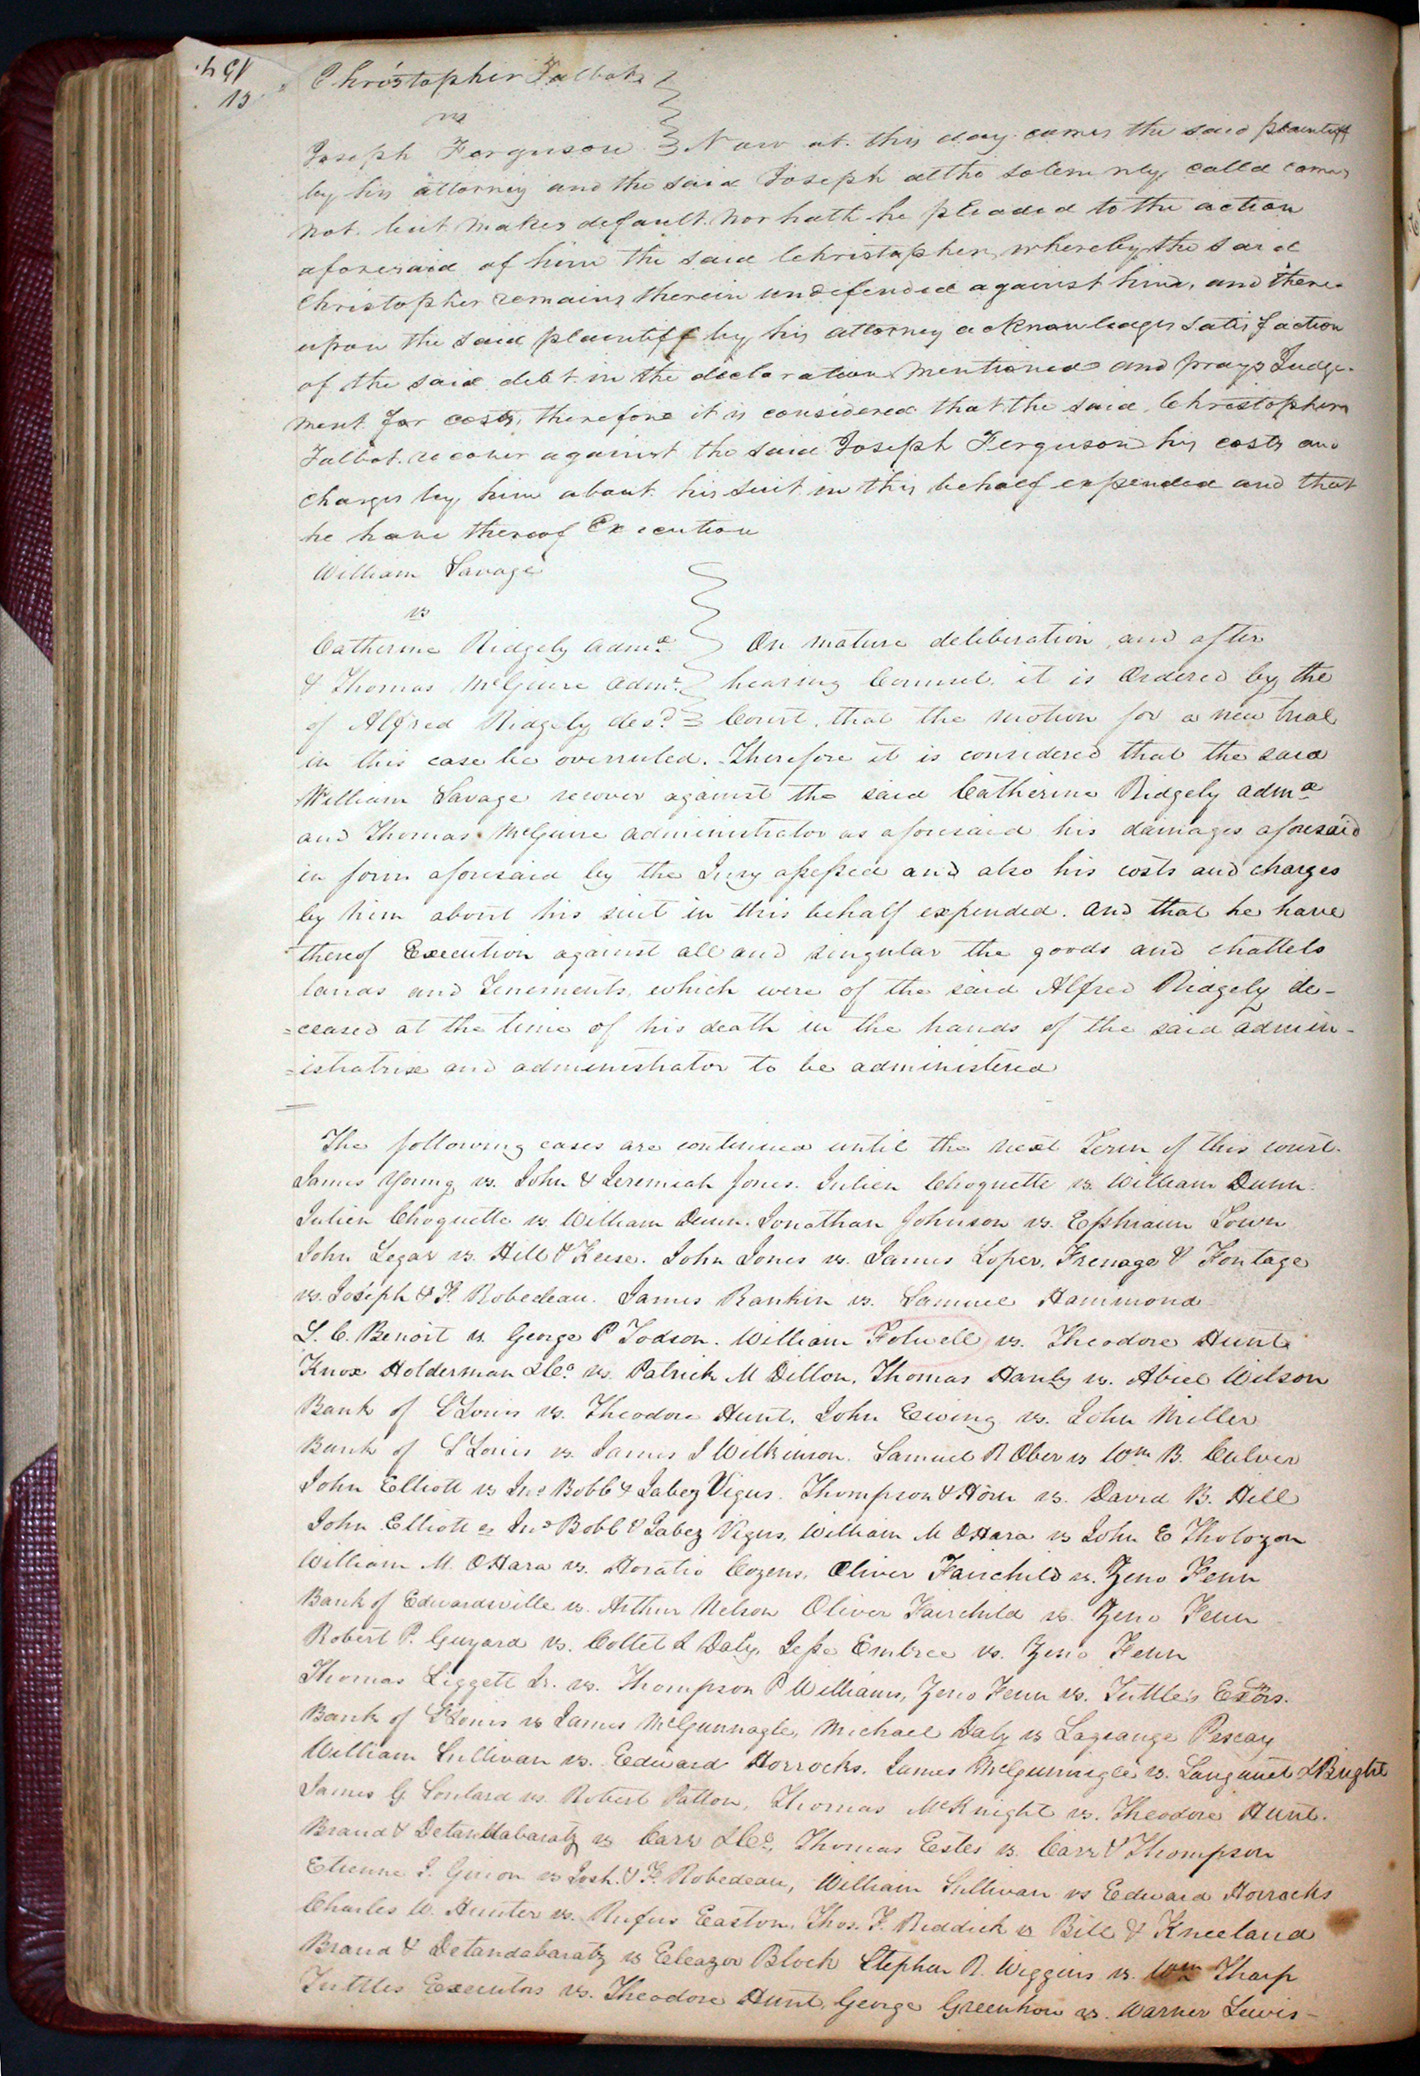 154.
Christopher Talbot
vs
Joseph Ferguson } Now at this day comes the said plaintiff
by his attorney and the said Joseph altho solemnly called comes
not but makes default. nor hath he pleaded to the action
aforesaid of him the said Christopher, whereby the said
Christopher remains therein undefended against him, and there-
upon the said plaintiff by his attorney acknowledges satisfaction
of the said debt in the declaration mentioned and prays Judge-
ment for costs, therefore it is considered that the said Christopher
Talbot recover against the said Joseph Ferguson his costs and
charges by him about his suit in this behalf expended and that
he have thereof Execution
William Savage
vs
Catherine Ridgely Admx } On mature deliberation, and after
& Thomas McGuire Admr. } hearing Counsel it is Ordered by the
of Alfred Ridgely des'd } Court, that the motion for a new trial
in this case be overruled. Therefore it is considered that the said
William Savage recover against the said Catherine Ridgely admx
and Thomas McGuire administrator as aforesaid his damages aforesaid
in form aforesaid by the Jury assessed and also his costs and charges
by him about his suit in this behalf expended. And that he have
thereof Execution against all and singular the goods and chattels
lands and Tenements, which were of the said Alfred Ridgely de-
=ceased at the time of his death in the hands of the said admin-
=istratrix and administrator to be administered
The following cases are continued until the next Term of this court.
James Young vs. John & Jeremiah Jones. Julien Choquette vs. William Dunn.
Julien Choquette vs William Dunn. Jonathan Johnson vs. Ephraim Town
John Legar vs. Hill & Keese. John Jones vs. James Loper, Frenage & Fontage
vs. Joseph & F. Robedeau. James Rankin vs. Samuel Hammond
L. C. Benoit vs. George P Todson. William Folwell vs. Theodore Hunt
Knox Holderman & Co. vs. Patrick M Dillon, Thomas Hanly vs. Abiel Wilson
Bank of St Louis vs. Theodore Hunt, John Ewing vs. John Miller
Bank of St Louis vs. James J Wilkinson. Samuel R Ober vs Wm B. Culver
John Elliott vs Jno Bobb & Jabez Vigus. Thompson & Horn vs. David B. Hill
John Elliott vs Jno Bobb & Jabez Vigus, William M OHara vs John E Tholozon
William M. OHara vs. Horatio Cozens, Oliver Fairchild vs. Zeno Fenn
Bank of Edwardsville vs. Arthur Nelson Oliver Fairchild vs. Zeno Fenn
Robert P. Guyard vs. Collet & Daly, Jesse Embree vs. Zeno Fenn
Thomas Liggett Jr. vs. Thompson P Williams, Zeno Fenn vs. Tuttle's Exors.
Bank of St Louis vs James McGunnagle, Michael Daly vs Lagrange Pescay
William Sullivan vs. Edward Horrocks. James McGunnigle vs. Sanguinet & Bright
James G. Soulard vs. Robert Patton, Thomas McKnight vs. Theodore Hunt.
Braud & Detandabaratz vs Carr & Co., Thomas Estes vs. Carr & Thompson
Etienne J. Guion vs Josh. & F. Robedeau, William Sullivan vs Edward Horrocks
Charles W. Hunter vs. Rufus Easton, Thos. F. Riddick vs Bill & Kneeland
Braud & Detandabaratz vs Eleazor Block Stephen R. Wiggins vs. Wm Tharp
Tuttles Executors vs. Theodore Hunt, George Greenhow vs. Warner Lewis-